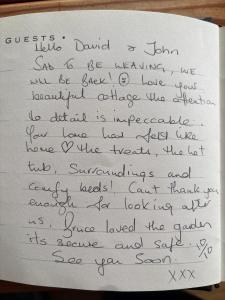 GUESTS •
Hello David & John
SAD TO BE LEAVING, WE
WILL BE BACK! love your
beautiful cottage the attention
to detail is impeccable.
Your home has felt like
home ♡ the treats, the hot
tub, Surroundings and
comfy beds! Can't thank you
enough for looking after
us. Bruce loved the garden
its secure and safe. 10/10
See you Soon.
xxx